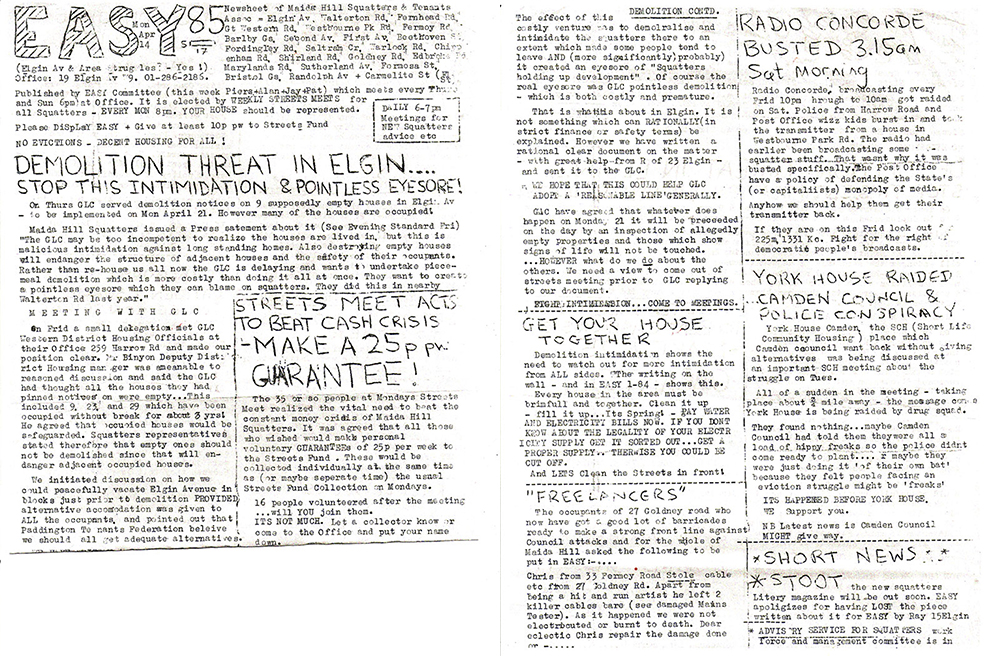 EASY 85
Mon
Apr
14
S 17
Newsheet of Maida Hill Squatters & Tenants
Assoc - Elgin Av, Walterton Rd, Fernhead Rd,
Gt Western Rd, Westbourne Pk Rd, Fermoy Rd,
Barlby Gs, Second Av, First Av, Beethoven St
Fordingley Rd, Saltram Cr, Warlock Rd, Chipp
enham Rd, Shirland Rd, Goldney Rd, Edbroke Rd
Marylands Rd, Sutherland Av, Formosa St,
Bristol Gs, Randolph Av + Carmelite St
(Elgin Av & Area Struggles! - Yes !)
Office: 19 Elgin Av W9. 01-286-2185.
Published by EASY Committee (this week Piers+Alan+Jay+Pat) which meets every Thurs
and Sun 6pm at Office. It is elected by WEEKLY STREETS MEETS for
all Squatters - EVERY MON 8pm. YOUR HOUSE should be represented.
Please DISplaY EASY + Give at least 10p pw to Streets Fund
NO EVICTIONS - DECENT HOUSING FOR ALL !
DAILY 6-7pm
Meetings for
NEW Squatters
advice etc
DEMOLITION THREAT IN ELGIN....
STOP THIS INTIMIDATION & POINTLESS EYESORE!
On Thurs GLC served demolition notices on 9 supposedly empty houses in Elgin Av
- to be implemented on Mon April 21. However many of the houses are occupied!
Maida Hill Squatters issued a Press satement about it (See Evening Standard Fri)
"The GLC may be too incompetent to realize the houses are lived in, but this is
malicious intimidation against long standing homes. Also destroying empty houses
will endanger the structure of adjacent houses and the safety of their occupants.
Rather than re-house us all now the GLC is delaying and wants to undertake piece-
meal demolition which is more costly than doing it all at once. They want to create
a pointless eyesore which they can blame on squatters. They did this in nearby
Walterton Rd last year."
MEETING WITH GLC
On Frid a small delegation met GLC
Western District Housing Officials at
their Office 259 Harrow Rd and made our
position clear. Mr Binyon Deputy Dist-
rict Housing manger was ameanable to
reasoned discussion and said the GLC
had thought all the houses they had
pinned notices on were empty...This
included 9, 23, and 29 which have been
occupied without break for about 3 yrs!
He agreed that occupied houses would be
safeguarded. Squatters representatives
stated therefore that empty ones should
not be demolished since that will en-
danger adjacent occupied houses.
We initiated discussion on how we
could peacefully vacate Elgin Avenue in
blocks just prior to demolition PROVIDED
alternative accomodation was given to
ALL the occupants, and pointed out that
Paddington Tenants Federation beleive
we should all get adequate alternatives.
STREETS MEET ACTS
TO BEAT CASH CRISIS
-MAKE A 25p pw.
GUARANTEE!
The 35 or so people at Mondays Streets
Meet realized the vital need to beat the
constant money crisis of Maida Hill
Squatters. It was agreed that all those
who wished would make personal
voluntary GUARANTSEs of 25p per week to
the Streets Fund . These would be
collected individually at the same time
as (or maybe seperate time) the usual
Streets Fund Collection on Mondays.
16 people volunteered after the meeting
...will YOU join them.
ITS NOT MUCH. Let a collector know or
come to the Office and put your name
down.
DEMOLITION CONTD.
The effect of this
costly venture was to demolralise and
intimidate the squatters there to an
extent which made some people tend to
leave AND (more significantly, probably)
it created an eyesore of "Squatters
holding up development" . Of course the
real eyesore was GLC pointless demolition
- which is both costly and premature.
That is whatthis about in Elgin. It is
not something which can RATIONALLY(in
strict finance or safety terms) be
explained. However we have written a
rational clear document on the matter
- with great help from R of 23 Elgin -
and sent it to the GLC.
WE HOPE THAT THIS COULD HELP GLC
ADOPT A 'REASONABLE LINE'GENERALLY.
GLC have agreed that whatever does
happen on Monday 21 it will be preceeded
on the day by an inspection of allegedly
empty properties and those which show
signs of life will not be touched.
...HOWEVER what do we do about the
others. We need a view to come out of
streets meeting prior to GLC replying
to our document.
FIGHT INTIMIDATION...COME TO MEETINGS.
GET YOUR HOUSE
TOGETHER
Demolition intimidation shows the
need to watch out for more intimidation
from ALL sides. "The writing on the
wall - and in EASY 1-84 - shows this.
Every house in the area must be
brimfull and together. Clean it up
- fill it up...Its Spring! - PAY WATER
AND ELECTRICITY BILLS NOW. IF YOU DONT
KNOW ABOUT THE LEGALITY OF YOUR ELECTR
ICITY SUPPLY GET IT SORTED OUT...GET A
PROPER SUPPLY.. OTHERWISE YOU COULD BE
CUT OFF.
And LETS Clean the Streets in front!
"FREELANCERS"
The occupants of 27 Goldney road who
now have got a good lot of barricades
ready to make a strong front line against
Council attacks and for the whole of
Maida Hill asked the following to be
put in EASY:-....
Chris from 33 Fermoy Road Stole cable
etc from 27 Goldney Rd. Apart from
being a hit and run artist he left 2
killer cables bare (see damaged Mains
Tester). As it happened we were not
electrocuted or burnt to death. Dear
eclectic Chris repair the damage done
or -.....
RADIO CONCORDE
BUSTED 3.15am
Sat Morning
Radio Concorde, broadcasting every
Frid 10pm through to 10am got raided
on Sat. Police from Harrow Road and
Post Office wizz kids burst in and took
the transmitter from a house in
Westbourne Park Rd. The radio had
earlier been broadcasting some
squatter stuff...That wasnt why it was
busted specifically.The Post Office
have a policy of defending the State's
(or capitalists) monopoly of media.
Anyhow we should help them get their
transmitter back.
If they are on this Frid look out
225m,1331 Kc. Fight for the right of
democratic people's broadcasts.
YORK HOUSE RAIDED
...CAMDEN COUNCIL &
POLICE CONSPIRACY
York House Camden, the SCH (Short Life
Community Housing ) place which
Camden council want back without giving
alternatives was being discussed at
an important SCH meeting about the
struggle on Tues.
All of a sudden in the meeting - taking
place about ½ mile away the message comes
York House is being raided by drug squad.
They found nothing...maybe Camden
Council had told them they were all a
load of hippy freaks so the police didnt
come ready to plant.... maybe they
were just doing it 'of their own bat'
because they felt people facing an
eviction struggle might be 'freaks'
ITS HAPPENED BEFORE YORK HOUSE.
WE Support you.
NB Latest news is Camden Council
MIGHT give way.
*SHORT NEWS:*
*STOOT the new squatters
Litery magazine will be out soon. EASY
apoligizes for having LOST the piece
written about it for EASY by Ray 15Elgin
* ADVISRY SERVICE FOR SQUATTERS work
force and management committee is in